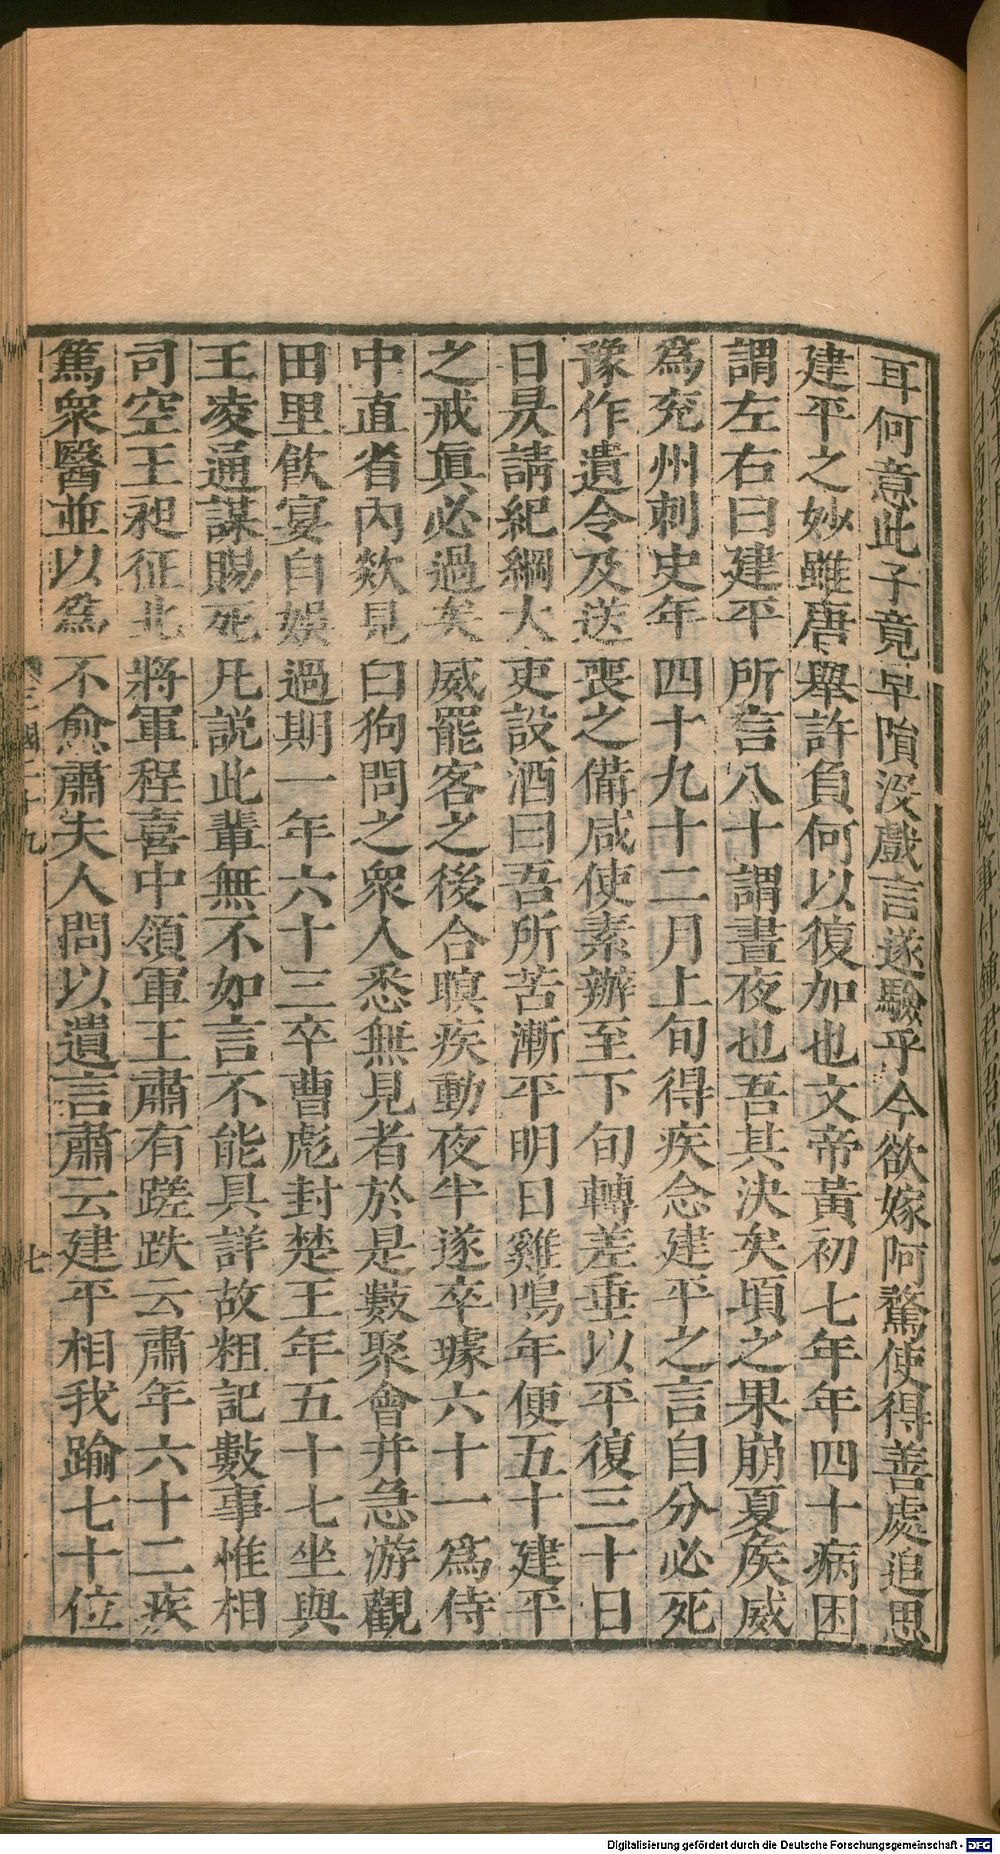 耳何意此子竟早隕沒戲言遂驗乎今欲嫁阿騖使得善處追思
建平之妙雖唐舉許負何以復加也文帝黃初七年年四十病困
謂左右曰建平所言八十謂晝夜也吾其決矣頃之果崩夏侯威
為兗州刺史年四十九十二月上旬得疾念建平之言自分必死
豫作遺令及送喪之備咸使素辦至下旬轉差垂以平復三十日
日昃請紀綱大吏設酒曰吾所苦漸平明日雞鳴年便五十建平
之戒真必過矣威罷客之後合瞑疾動夜半遂卒璩六十一為侍
中直省內欻見白狗問之衆人悉無見者於是數聚會并急游觀
田里飲宴自娛過期一年六十三卒曹彪封楚王年五十七坐與
王凌通謀賜死凡說此輩無不如言不能具詳故粗記數事惟相
司空王昶征北將軍程喜中領軍王肅有蹉跌云肅年六十二疾
篤衆醫並以為不愈肅夫人問以遺言肅云建平相我踰七十位
三國二十九
七
Digitalisierung gefördert durch die Deutsche Forschungsgemeinschaft - DFG